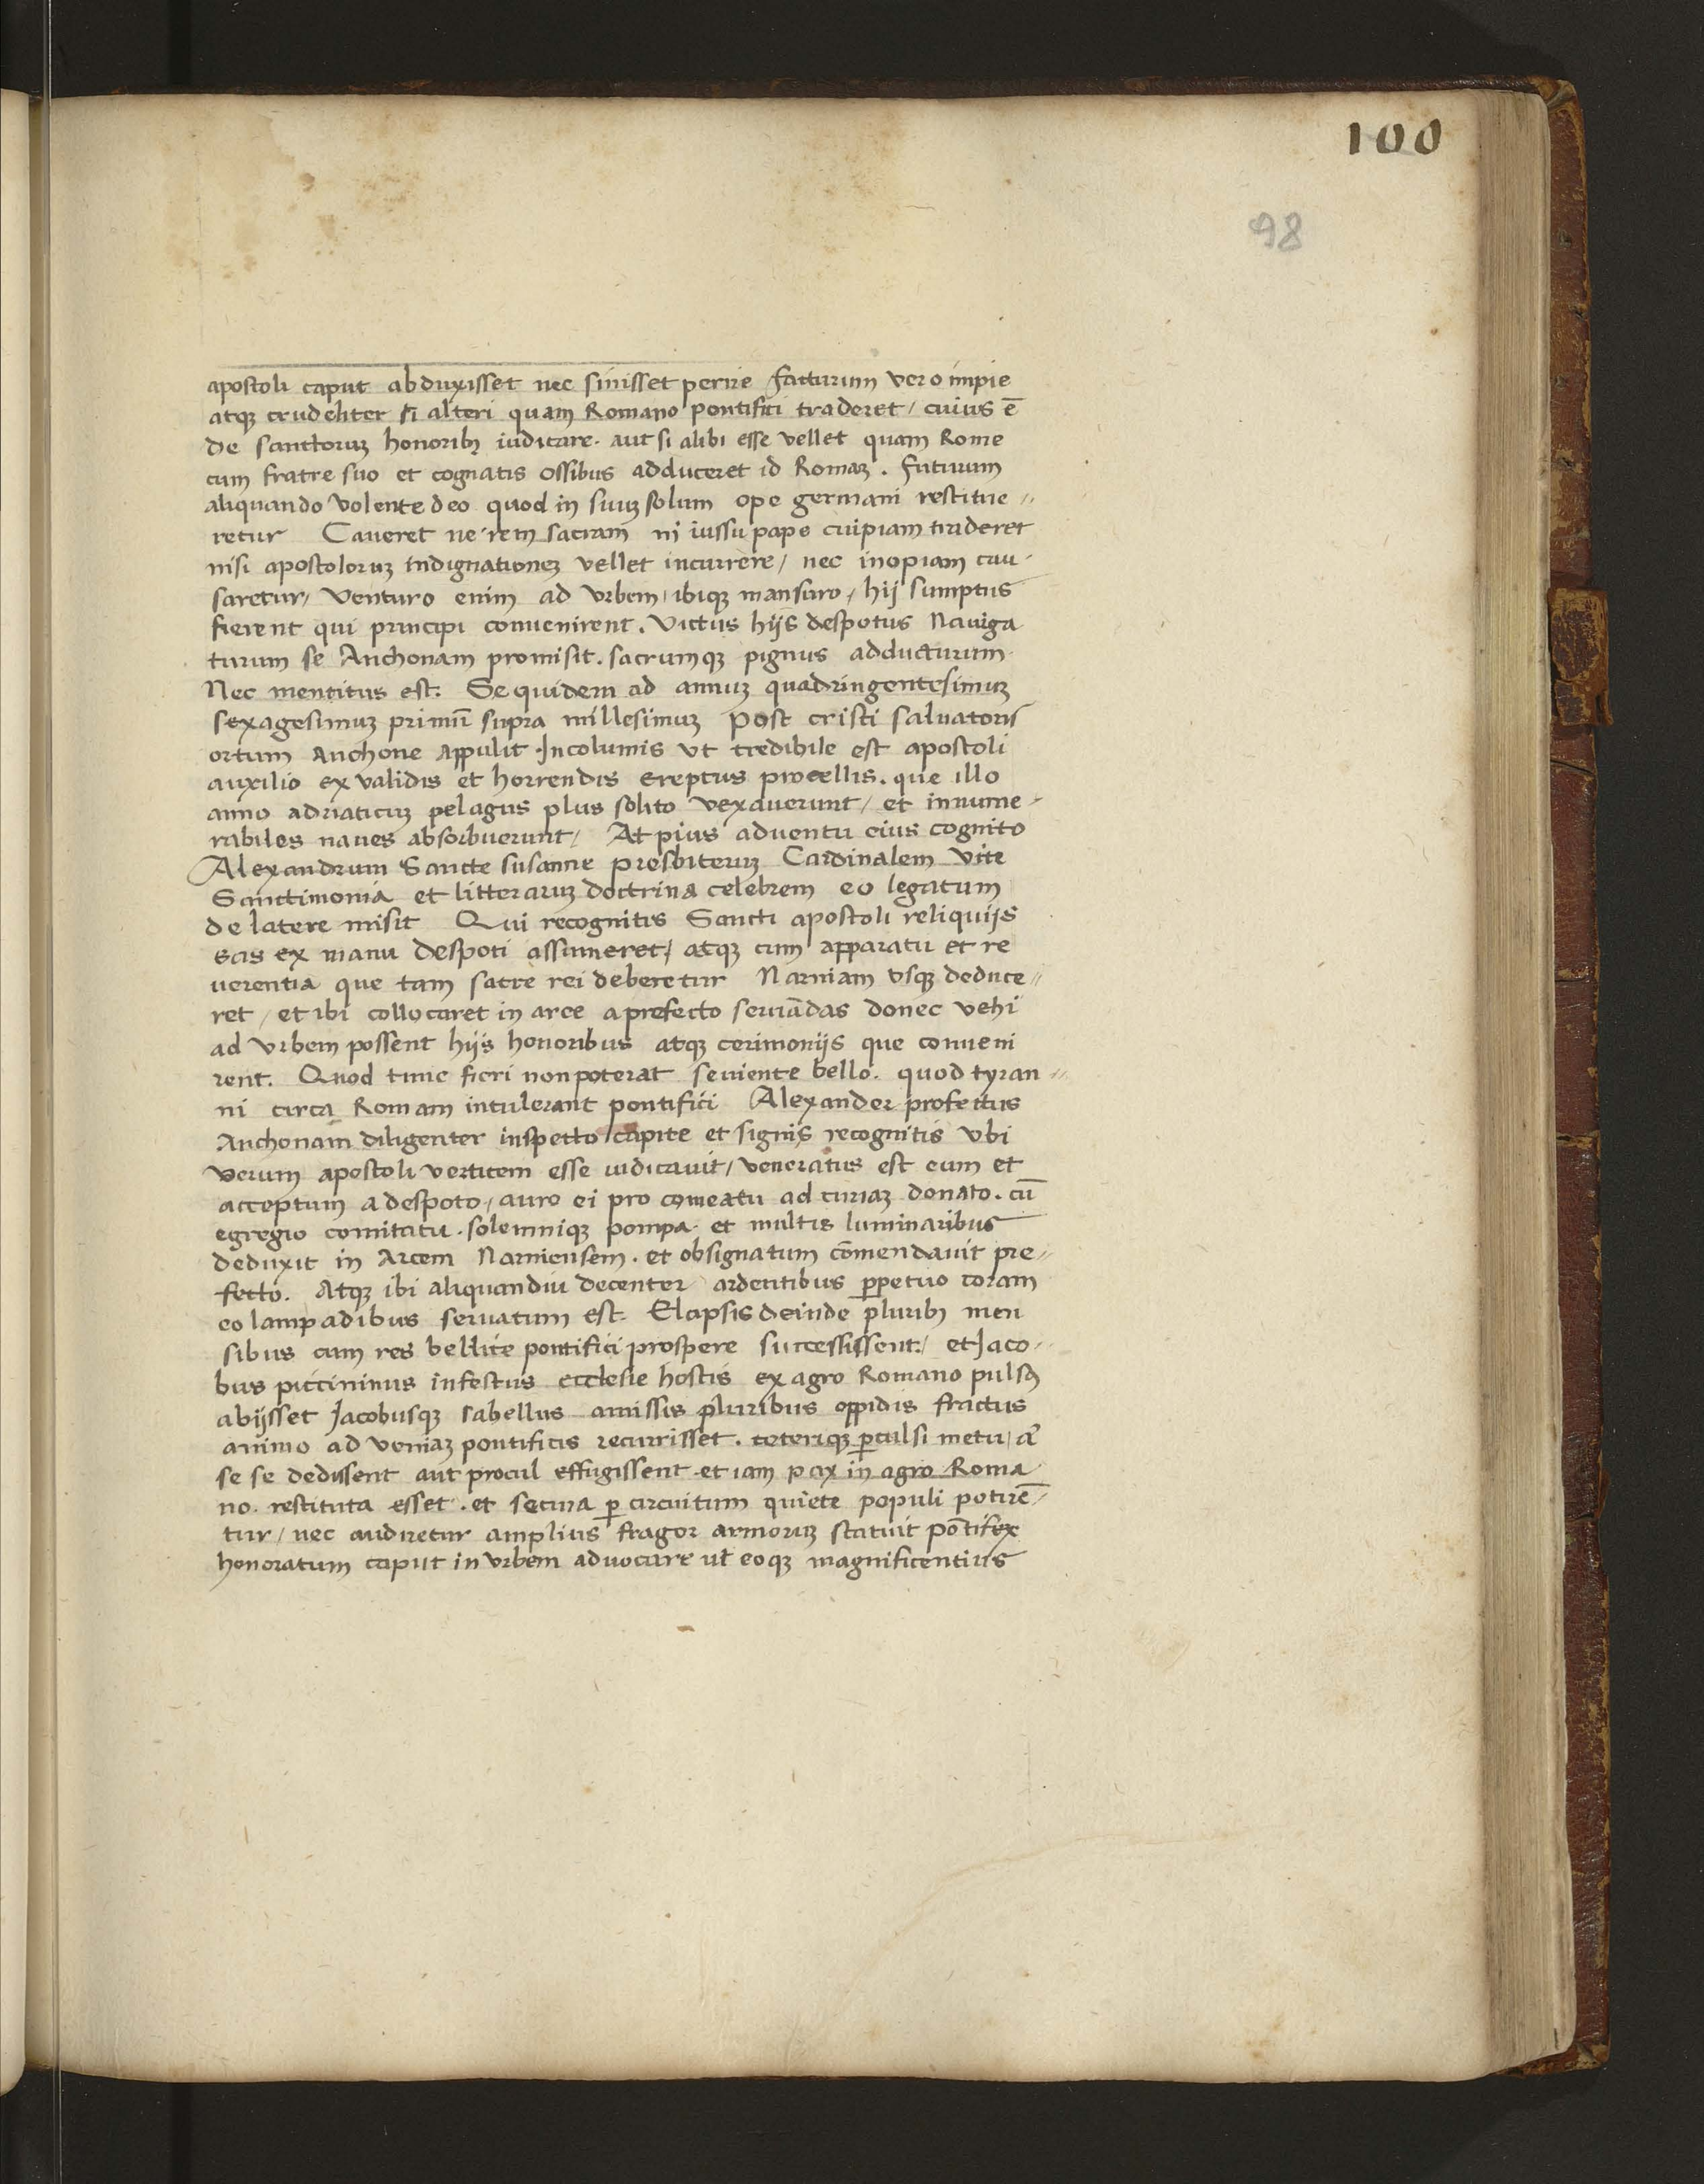 100
98
apostoli caput abduxisset nec sinisset perire facturum vero impie
atqꝫ crudeliter si alteri quam Romano pontifici traderet / cuius ē
de sanctoruꝫ honoribꝫ iudicare. aut si alibi esse vellet quam Rome
cum fratre suo et cognatis ossibus adduceret id Romaꝫ. futurum
aliquando volente deo quod in suuꝫ solum ope germani restitue〃
retur Caveret ne rem sacram ni iussu pape cuipiam traderet
nisi apostoloruꝫ indignationeꝫ vellet incurrere / nec inopiam cau-
saretur / venturo enim ad vrbem / ibiqꝫ mansuro / hij sumptus
fierent qui principi convenirent. Victus hijs despotus naviga
turum se Anchonam promisit. sacrumqꝫ pignus adducturum.
Nec mentitus est. Se quidem ad annuꝫ quadringentesimuꝫ
sexagesimuꝫ primū supra millesimuꝫ post cristi salvatoris
ortum Anchone appulit Incolumis vt credibile est apostoli
auxilio ex validis et horrendis ereptus procellis. que illo
anno adriaticuꝫ pelagus plus solito vexaverunt / et innume-
rabiles naves absorbuerunt / At pius adventu eius cognito
Alexandrum Sancte susanne presbiteruꝫ Cardinalem vite
Sanctimonia et litteraruꝫ doctrina celebrem eo legatum
de latere misit Qui recognitis Sancti apostoli reliquijs
eas ex manu despoti assumeret / atqꝫ cum apparatu et re
verentia que tam sacre rei deberetur Narniam vsqꝫ deduce〃
ret / et ibi collocaret in arce a prefecto servādas donec vehi
ad vrbem possent hijs honoribus atqꝫ cerimonijs que conveni
rent. Quod tunc fieri non poterat seviente bello. quod tyran〃
ni circa Romam intulerant pontifici Alexander profectus
Anchonam diligenter inspecto capite et signis recognitis vbi
verum apostoli verticem esse iudicavit / veneratus est eum et
acceptum a despoto / auro ei pro comeatu ad curiaꝫ donato. cū
egregio comitatu. solemniqꝫ pompa. et multis luminaribus
deduxit in Arcem Narniensem. et obsignatum cōmendavit pre〃
fecto. Atqꝫ ibi aliquandiu decenter ardentibus ꝑpetuo coram
eo lampadibus servatum est. Elapsis deinde pluribꝫ men
sibus cum res bellice pontifici prospere successissent / et Jaco〃
bus piccininus infestus ecclesie hostis ex agro Romano pulsꝰ
abijsset Jacobusqꝫ sabellus amissis pluribus oppidis fractus
animo ad veniaꝫ pontificis recurrisset. ceteriqꝫ ꝑculsi metu / a͛
se se dedissent aut procul effugissent. et iam pax in agro Roma
no. restituta esset. et secura ꝑ circuitum quiete populi potirē/
tur / nec audiretur amplius fragor armoruꝫ statuit pōtifex
honoratum caput in vrbem advocare vt eoqꝫ magnificentius